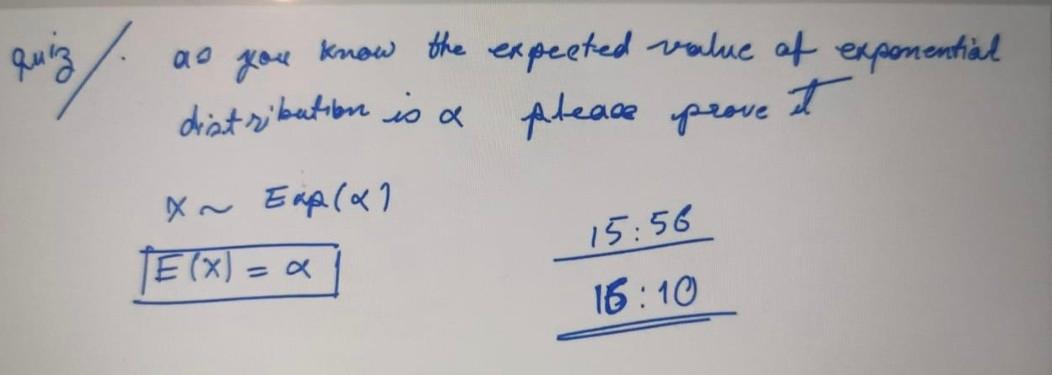 Quiz/. as you know the expected value of exponential
distribution is α please prove it
X ~ Exp(α)
E(X) = α
15:56
16:10